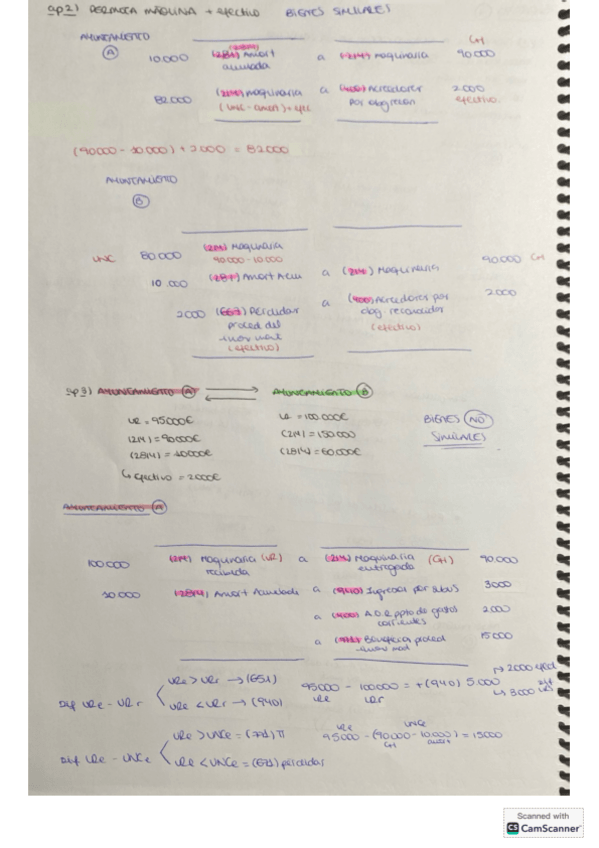 ap 2) PERMUTA MÁQUINA + efectivo BIENES SIMILARES
AYUNTAMIENTO
A
10.000 (2814) Amort acumulada a (214) maquinaria 90.000
82.000 (214) maquinaria a (400) Acreedores por oblig recon 2.000
efectivo
(90.000 - 10.000) + 2.000 = 82.000
AYUNTAMIENTO
B
VNC 80.000 (214) Maquinaria
90.000 - 10.000
10.000 (281) Amort Acu a (214) Maquinaria 90.000
2000 (667) Pérdidas a (400) Acreedores por 2.000
proced del oblig. reconocidas
(efectivo) (efectivo)
ap 3) AYUNTAMIENTO A AYUNTAMIENTO B
VR = 95.000€ VR = 100.000€
(214) = 90.000€ (214) = 150.000
(2814) = 10.000€ (2814) = 60.000€
↳ efectivo = 2000€
BIENES NO
SIMILARES
AYUNTAMIENTO A
100.000 (214) Maquinaria (VR) a (214) Maquinaria 90.000
recibida entregada
10.000 (2814) Amort Acumulada a (940) Ingresos por subv 3000
a (400) A.O.R ppto de gastos 2.000
corrientes
a Beneficios proced 15.000
inmov mat
Dif VRe - VRr
VRe > VRr → (651)
VRe < VRr → (940)
95000 - 100.000 = + (940) 5.000
VRe VRr
→ 2000 efect
↳ 3000
Dif VRe - VNCe
VRe > VNCe = (771)
VRe < VNCe = (671) pérdidas
VRe VNCe
95.000 - (90.000 - 10.000) = 15000
Scanned with
CS CamScanner